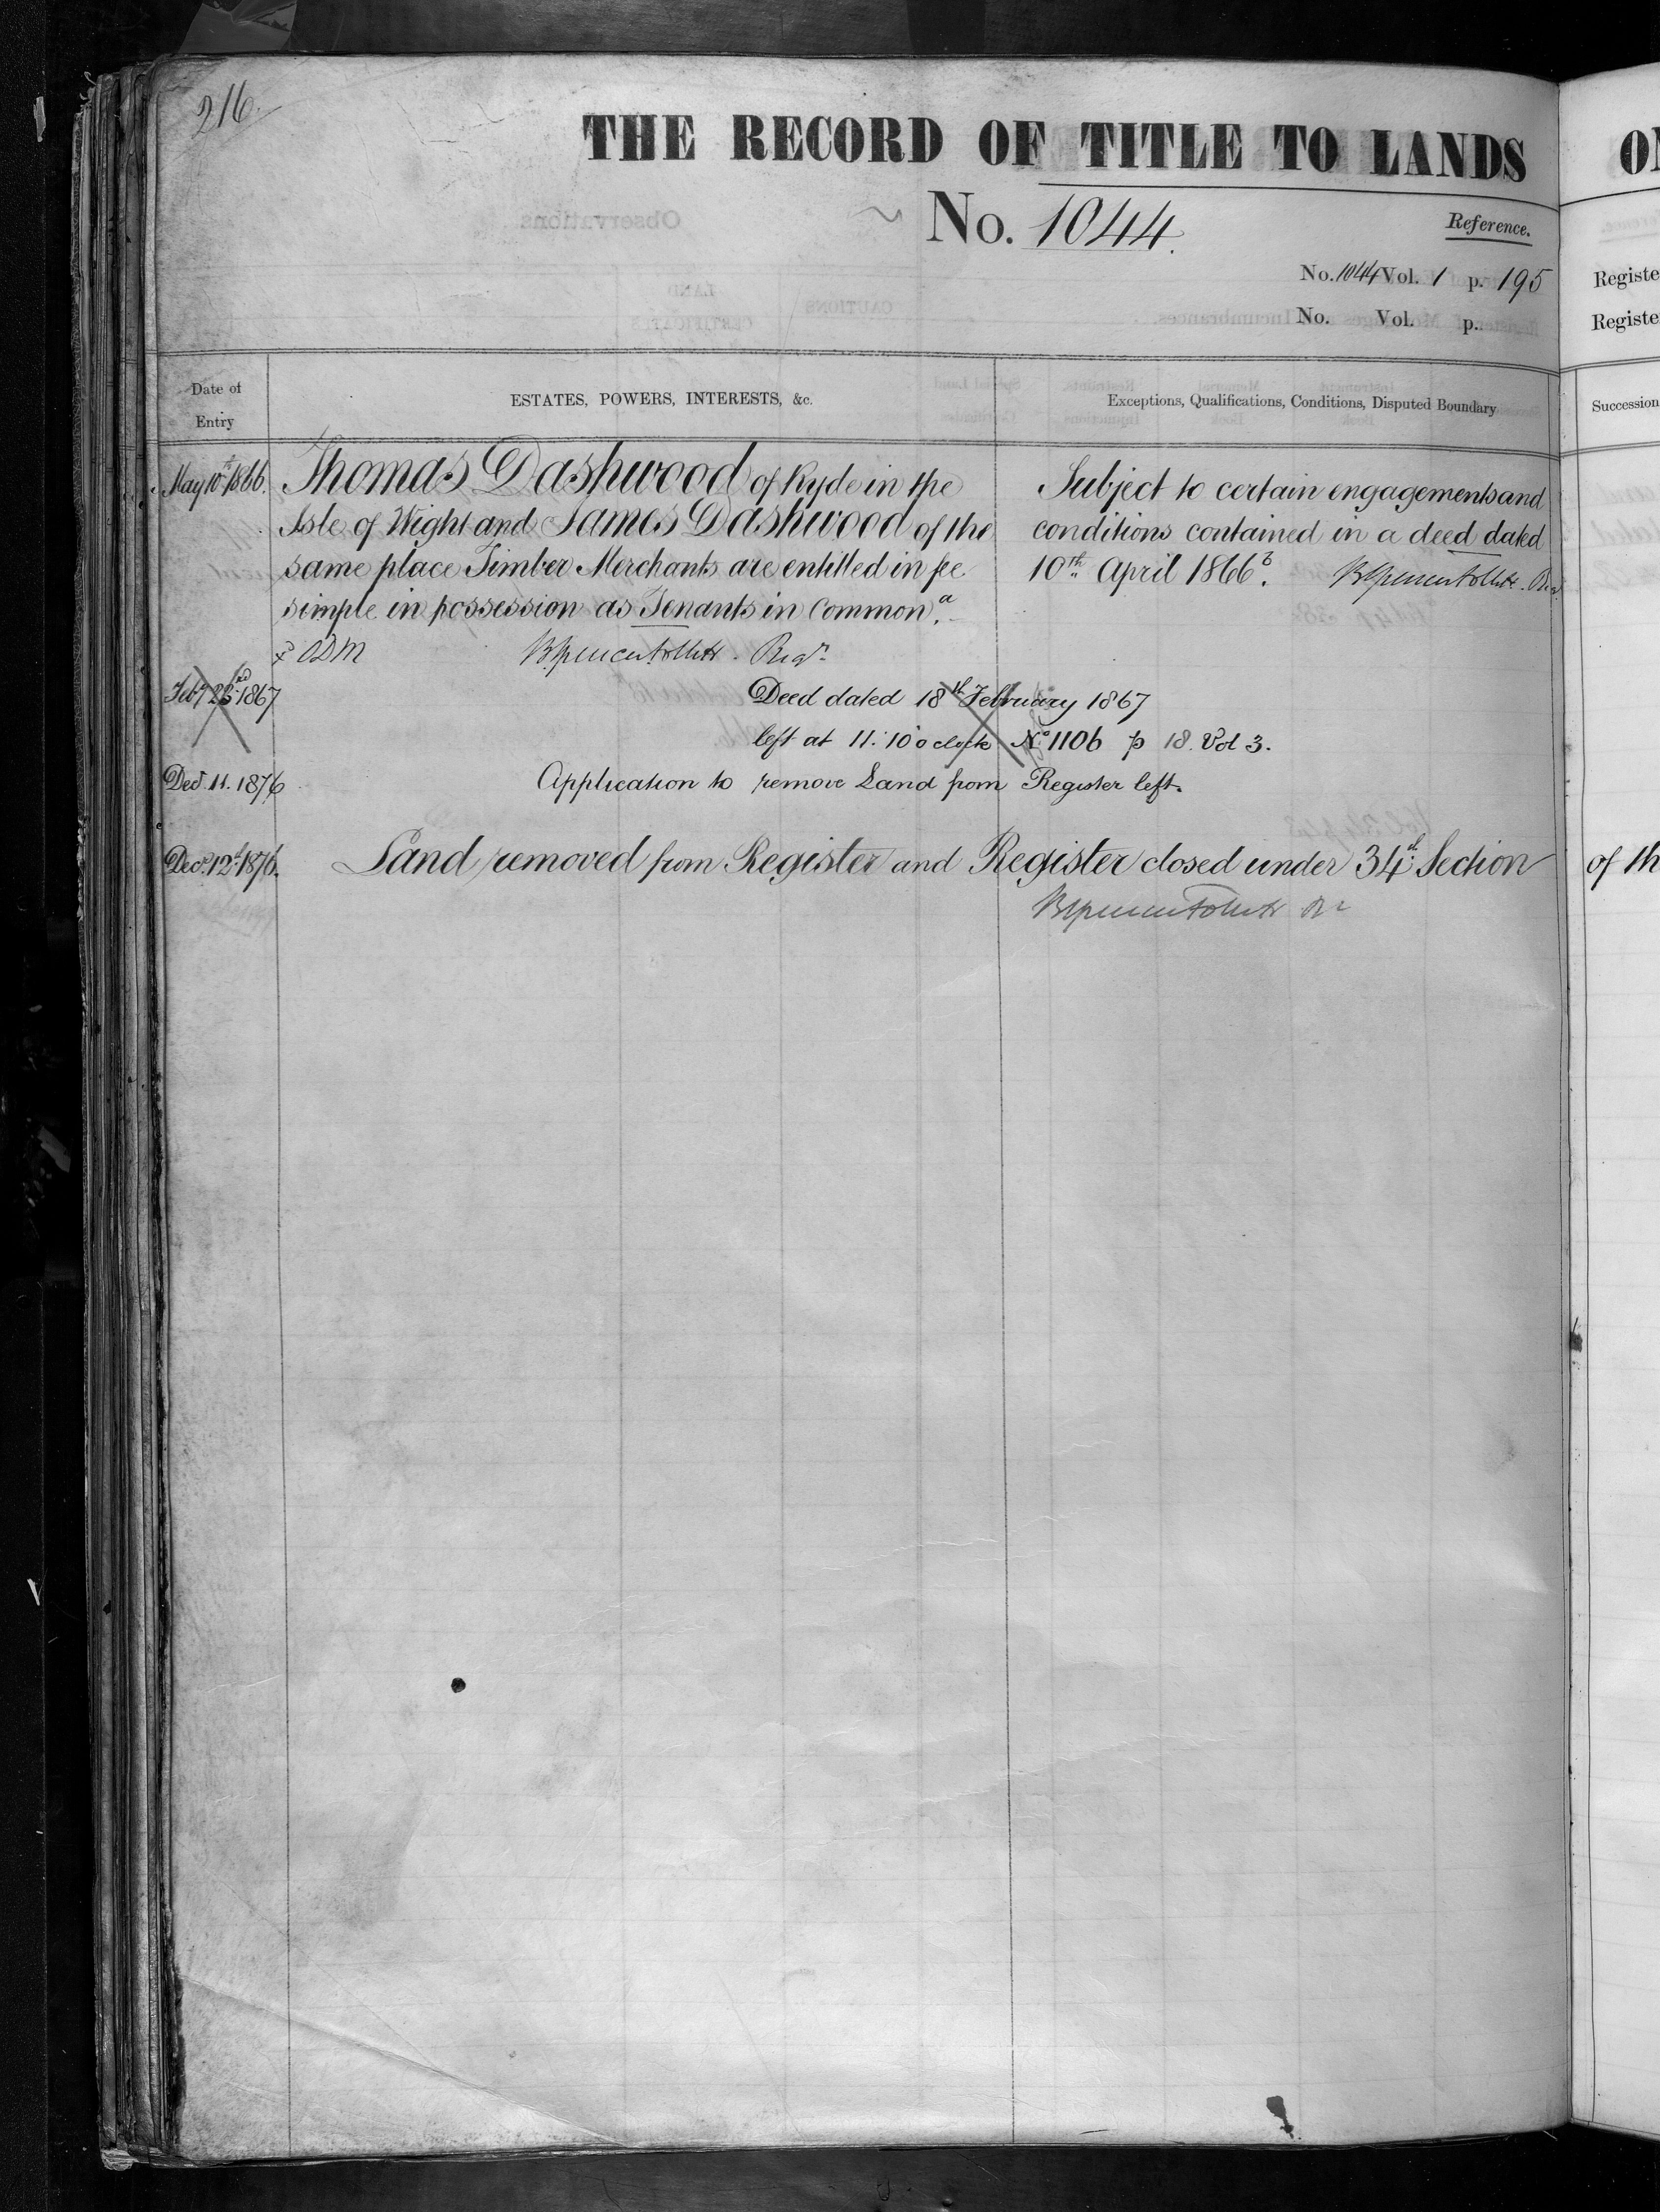 216.
THE RECORD OF TITLE TO LANDS
No. 1044.
Reference.
No. 1044 Vol. 1 p. 195
No. Vol. p.
Date of
Entry
ESTATES, POWERS, INTERESTS, &c.
Exceptions, Qualifications, Conditions, Disputed Boundary
May 10th 1866.
Thomas Dashwood of Ryde in the
Isle of Wight and James Dashwood of the
same place Timber Merchants are entitled in fee
simple in possession as Tenants in Common.a
Subject to certain engagements and
conditions contained in a deed dated
10th April 1866.b
ODM
Regr
Feby 23rd 1867
Deed dated 18th February 1867
left at 11:10 o'clock No 1106 p 18. Vol 3.
Decr. 11. 1876
Application to remove Land from Register left.
Decr. 12th 1876.
Land removed from Register and Register closed under 34th Section
of th
Registe
Registe
Succession